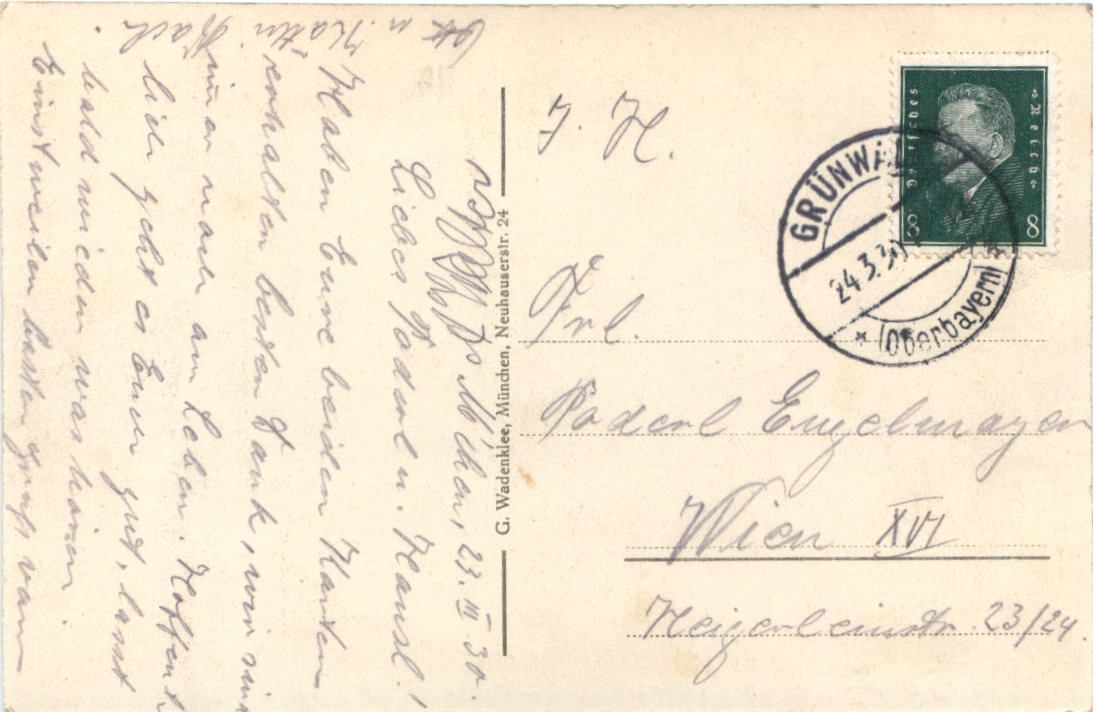 Mchen, 23. III 30.
Liebes Poderl u. Hansl!
Haben Eure beiden Karten
erhalten besten Dank, wir sind
immer noch am Leben. Hoffent
lich geht es Euch gut, lasst
bald wieder was hören
Einstweilen besten Gruß von
G. Wadenklee, München, Neuhauserstr. 24
I. H.
Frl.
Poderl Engelmayer
Wien XVI
Heigerleinstr. 23/24.
Deutsches Reich
8 8
GRÜNWALD
24.3.30
* (Oberbayern)